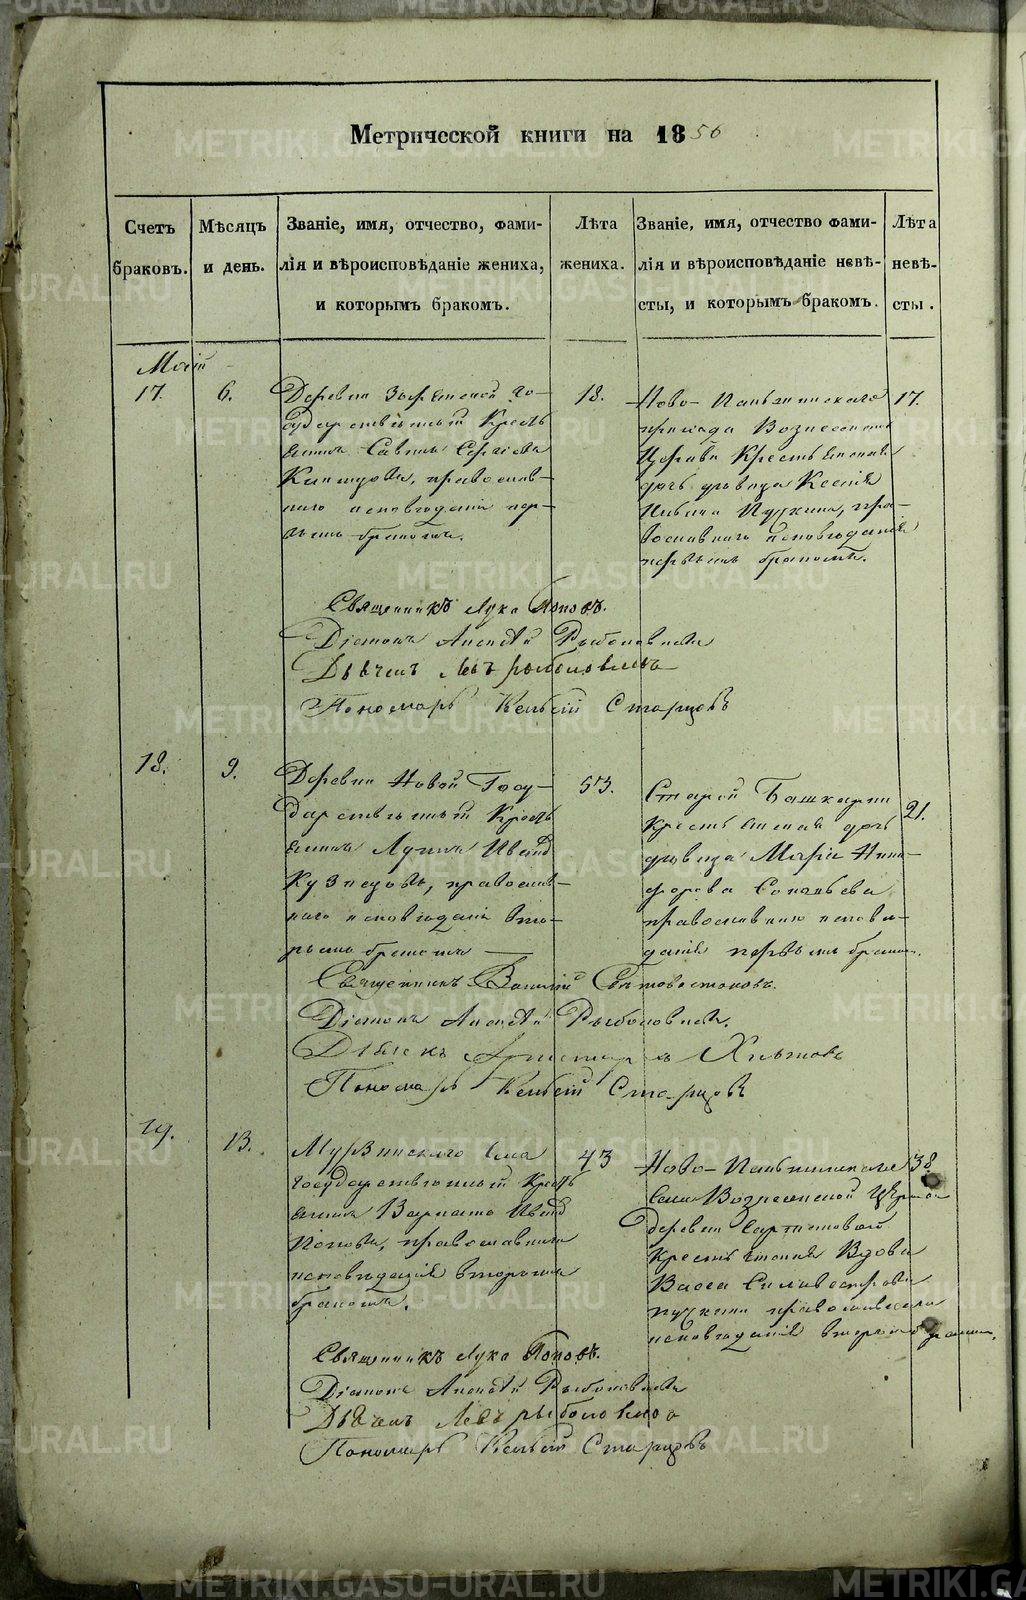 Метрической книги на 1856
Счетъ браковъ.
Мѣсяцъ и день.
Званіе, имя, отчество, фами-
лія и вѣроисповѣданіе жениха,
и которымъ бракомъ.
Лѣта
жениха.
Званіе, имя, отчество фами-
лія и вѣроисповѣданіе невѣ-
сты, и которымъ бракомъ.
Лѣта
невѣ-
сты.
Маій
17.
6.
Деревни го-
сударственный Кресть
янинъ Савинъ
православ-
наго исповѣданія пер-
вымъ бракомъ.
18.
Ново-
прихода Вознесенской
Церкви Крестьянская
дочь дѣвица Ксенія
пра-
вославнаго исповѣданія
первымъ бракомъ.
17.
Священникъ Лука Поповъ.
Діаконъ Алексѣй Рыболовлевъ
Дьячекъ Левъ рыболовлевъ
Пономарь Старцовъ
18.
9.
Деревни Новой Госу-
дарственный Кресть
янинъ Ивановъ
Кузнецовъ, православ-
наго исповѣданія вто-
рымъ бракомъ
53.
Старой Башкарки
Крестьянская дочь
дѣвица Марія Ники-
форова
православнаго исповѣ-
данія первымъ бракомъ.
21.
Священникъ Василій
Діаконъ Алексѣй Рыболовлевъ.
Дьячекъ
Пономарь Старцовъ
19.
13.
Мурзинскаго Села
государственный Кресть
янинъ Ивановъ
Поповъ, православнаго
исповѣданія вторымъ
бракомъ.
43
Ново-
Села Вознесенской Церкви
деревни
Крестьянская Вдова
Васса Силивестрова
православнаго
исповѣданія вторымъ бракомъ.
38.
Священникъ Лука Поповъ.
Діаконъ Алексѣй Рыболовлевъ
Дьячекъ Левъ рыболовлевъ
Пономарь Старцовъ
METRIKI.GASO-URAL.RU